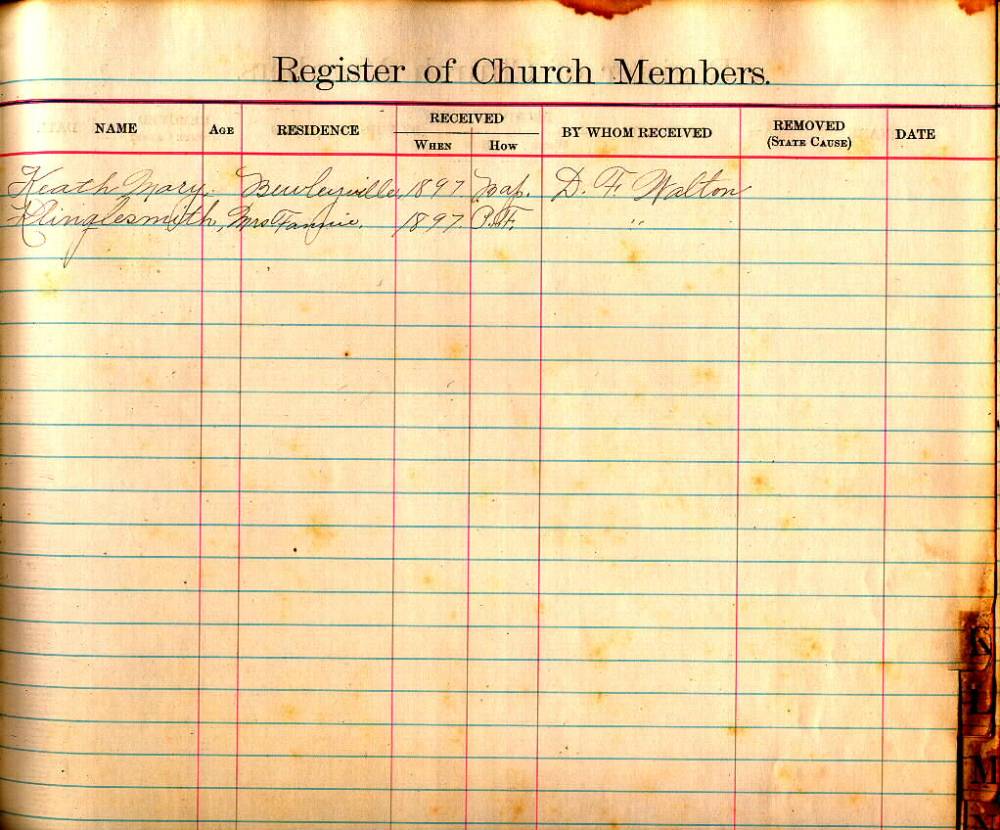 Register of Church Members.
NAME AGE RESIDENCE RECEIVED WHEN HOW BY WHOM RECEIVED REMOVED (STATE CAUSE) DATE
Keath Mary. Bewleyville, 1897 Bap. D. F. Walton
Klinglesmith, Mrs Fannie. 1897. P.F. "
K
L
M
N